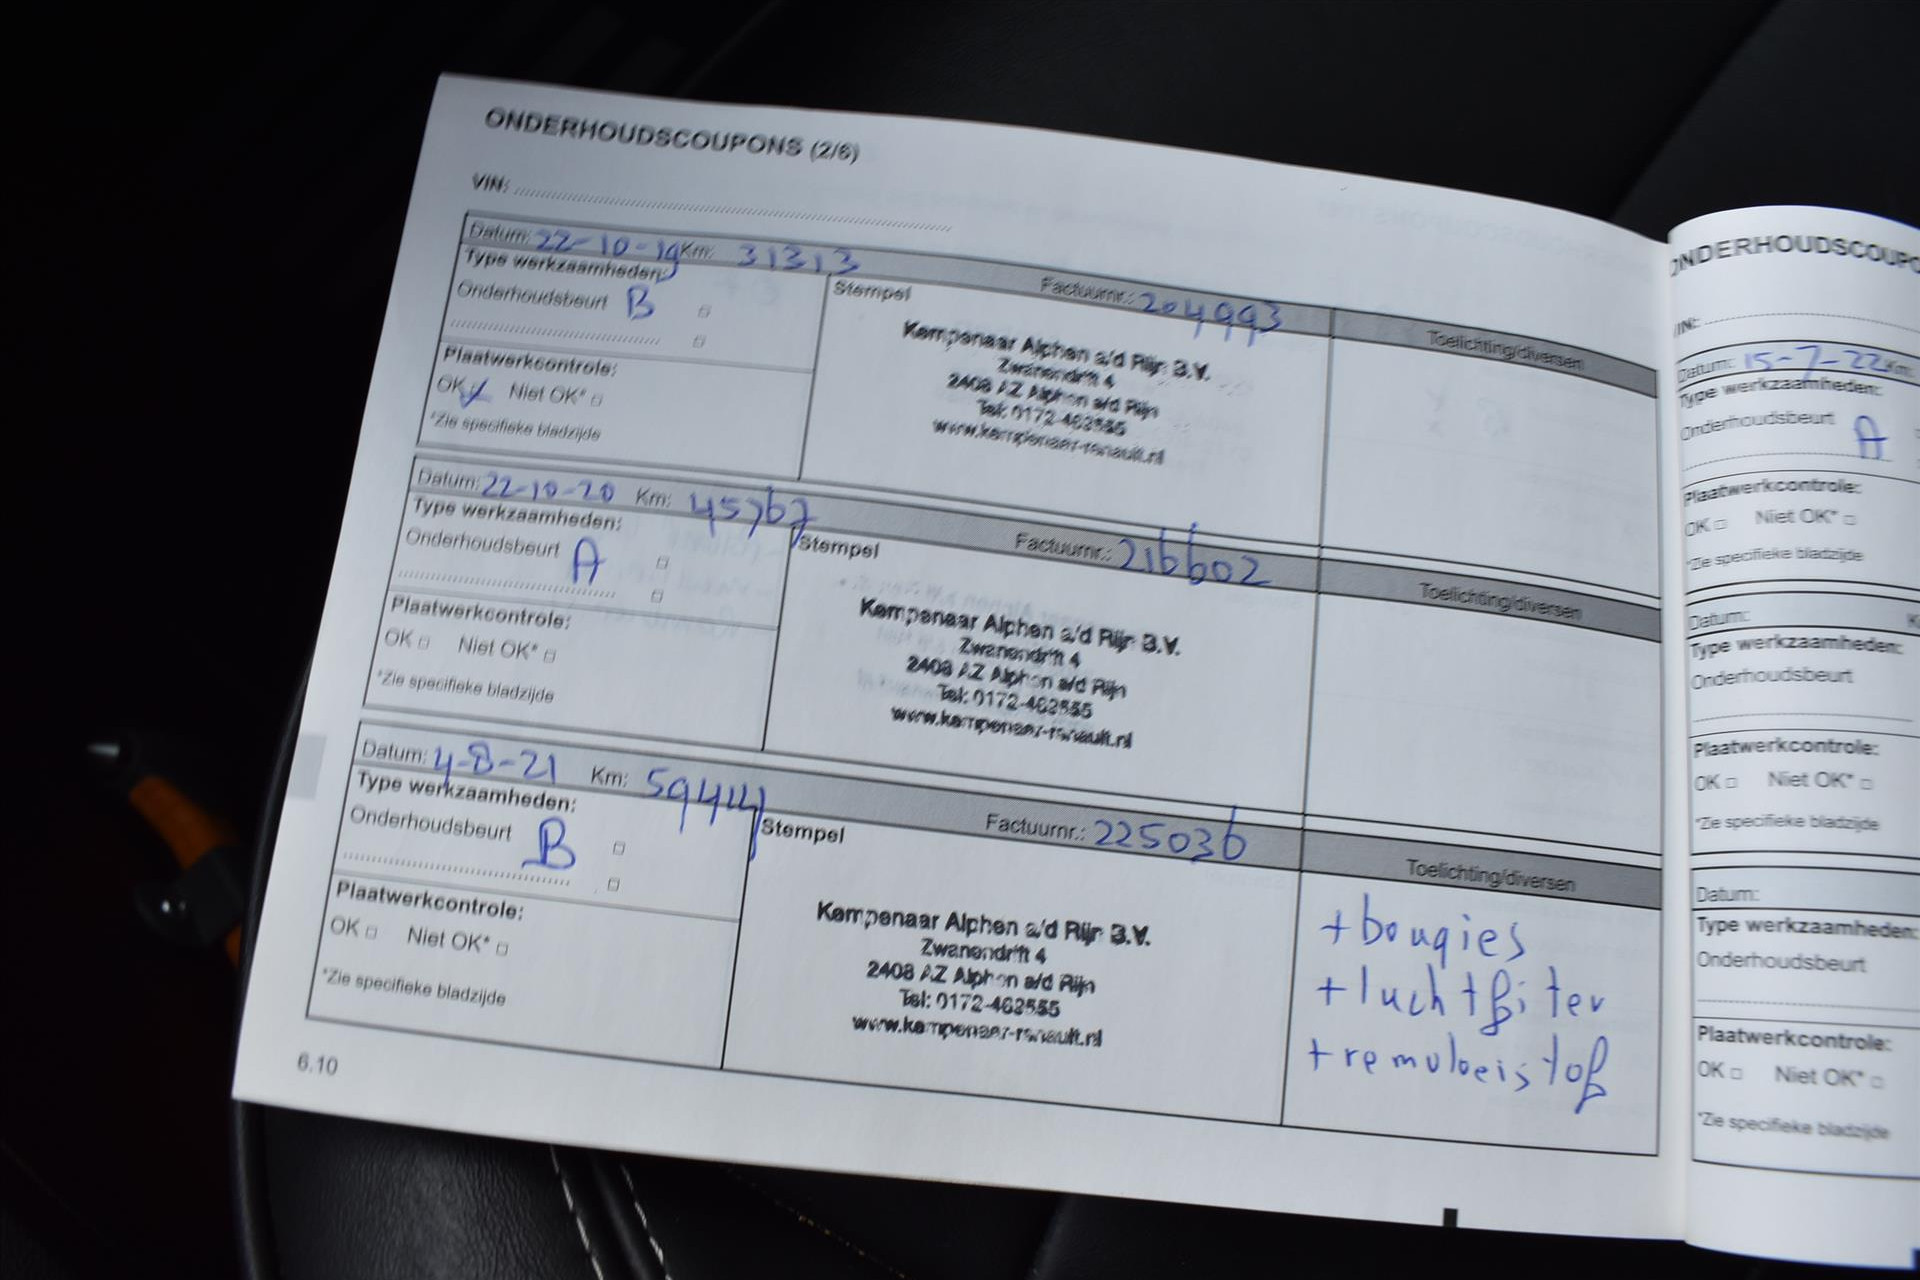 ONDERHOUDSCOUPONS (2/6)
VIN:
Datum: 22-10-19 Km: 31313 Factuurnr.: 204993
Type werkzaamheden:
Onderhoudsbeurt B
Stempel
Toelichting/diversen
Kempenaar Alphen a/d Rijn B.V.
Zwanendrift 4
2408 AZ Alphen a/d Rijn
Tel: 0172-462555
www.kempenaar-renault.nl
Plaatwerkcontrole:
OK Niet OK*
*Zie specifieke bladzijde
Datum: 22-10-20 Km: 45767 Factuurnr.: 216602
Type werkzaamheden:
Onderhoudsbeurt A
Stempel
Toelichting/diversen
Kempenaar Alphen a/d Rijn B.V.
Zwanendrift 4
2408 AZ Alphen a/d Rijn
Tel: 0172-462555
www.kempenaar-renault.nl
Plaatwerkcontrole:
OK Niet OK*
*Zie specifieke bladzijde
Datum: 4-8-21 Km: 59444 Factuurnr.: 225036
Type werkzaamheden:
Onderhoudsbeurt B
Stempel
Toelichting/diversen
Kempenaar Alphen a/d Rijn B.V.
Zwanendrift 4
2408 AZ Alphen a/d Rijn
Tel: 0172-462555
www.kempenaar-renault.nl
+bougies
+luchtfiter
+remvloeistof
Plaatwerkcontrole:
OK Niet OK*
*Zie specifieke bladzijde
6.10
ONDERHOUDSCOUPO
VIN:
Datum: 15-7-22 Km:
Type werkzaamheden:
Onderhoudsbeurt A
Plaatwerkcontrole:
OK Niet OK*
*Zie specifieke bladzijde
Datum: K
Type werkzaamheden:
Onderhoudsbeurt
Plaatwerkcontrole:
OK Niet OK*
*Zie specifieke bladzijde
Datum:
Type werkzaamheden:
Onderhoudsbeurt
Plaatwerkcontrole:
OK Niet OK*
*Zie specifieke bladzijde